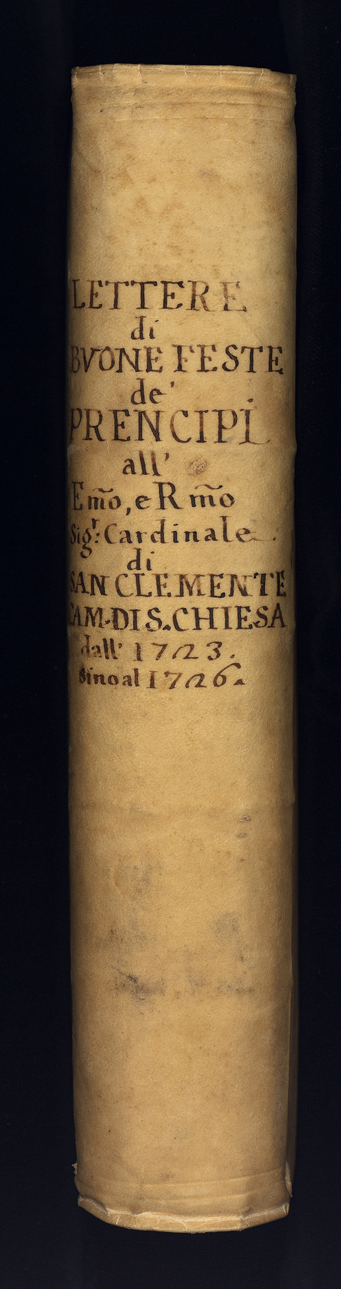 LETTERE
di
BVONE FESTE
de'
PRENCIPI
all'
Em̃o, e Rm̃o
Sigr: Cardinale
di
SAN CLEMENTE
CAM. DI S. CHIESA
dall' 1723.
Sino al 1726.